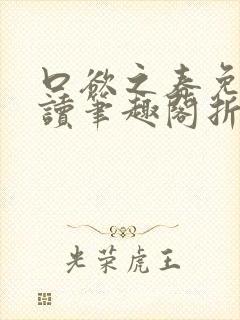 口欲之春免
讀筆趣閣折
光荣虎王